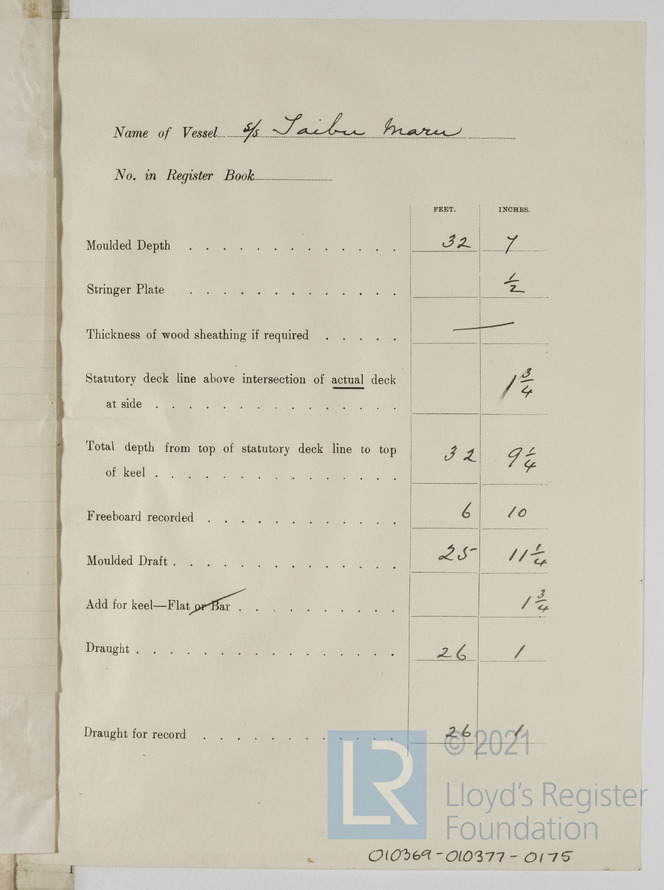 Name of Vessel s/s Taibu Maru
No. in Register Book
FEET. INCHES.
Moulded Depth 32 7
Stringer Plate 1/2
Thickness of wood sheathing if required —
Statutory deck line above intersection of actual deck
at side 1 3/4
Total depth from top of statutory deck line to top
of keel 32 9 1/4
Freeboard recorded 6 10
Moulded Draft 25 11 1/4
Add for keel—Flat or Bar 1 3/4
Draught 26 1
Draught for record 26 1
LR
© 2021
Lloyd's Register
Foundation
010369-010377-0175